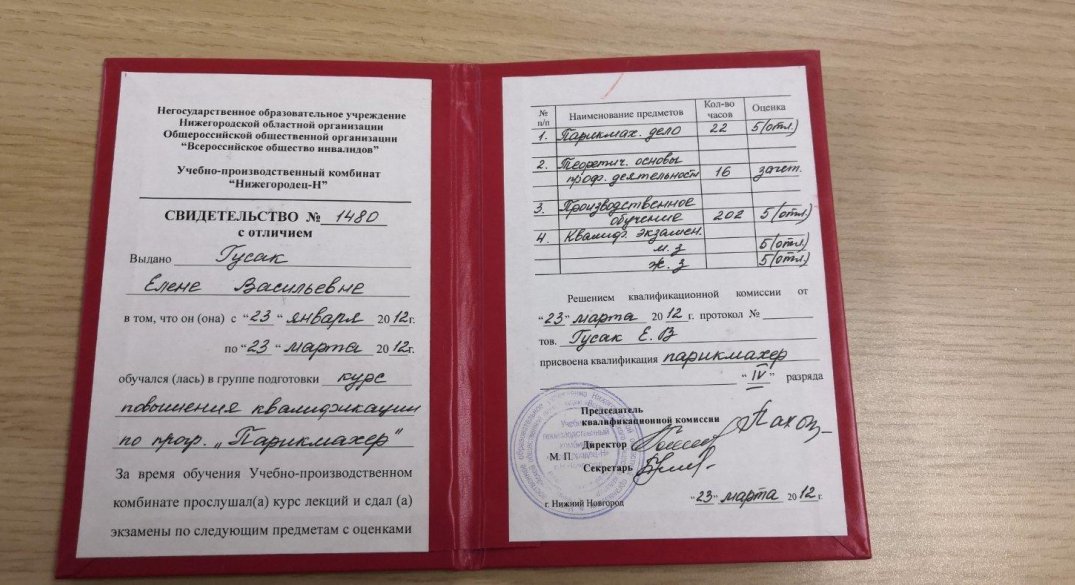 Негосударственное образовательное учреждение
Нижегородской областной организации
Общероссийской общественной организации
“Всероссийское общество инвалидов”
Учебно-производственный комбинат
“Нижегородец-Н”
СВИДЕТЕЛЬСТВО № 1480
с отличием
Выдано Гусак
Елене Васильевне
в том, что он (она) с “23” января 2012г.
по “23” марта 2012г.
обучался (лась) в группе подготовки курс
повышения квалификации
по проф. „Парикмахер”
За время обучения Учебно-производственном
комбинате прослушал(а) курс лекций и сдал (а)
экзамены по следующим предметам с оценками
№ п/п Наименование предметов Кол-во часов Оценка
1. Парикмах. дело 22 5 (отл.)
2. Теоретич. основы
проф. деятельност 16 зачет.
3. Производственное
обучение 202 5 (отл.)
4. Квалиф. экзамен.
м. з 5 (отл.)
ж. з 5 (отл.)
Решением квалификационной комиссии от
“23” марта 2012 г. протокол №
тов. Гусак Е. В
присвоена квалификация парикмахер
“IV” разряда
Председатель
квалификационной комиссии
Директор
М. П.
Секретарь
г. Нижний Новгород “23” марта 2012 г.